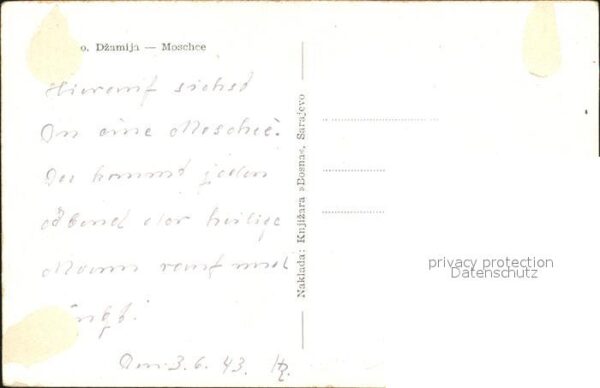 o. Džamija — Moschee
Hierauf siehst
Du eine Moschee.
Da kommt jeden
Abend der heilige
Mann rauf und
singt.
Den 3.6.43.
Naklada: Knjižara »Bosna«, Sarajevo
privacy protection
Datenschutz